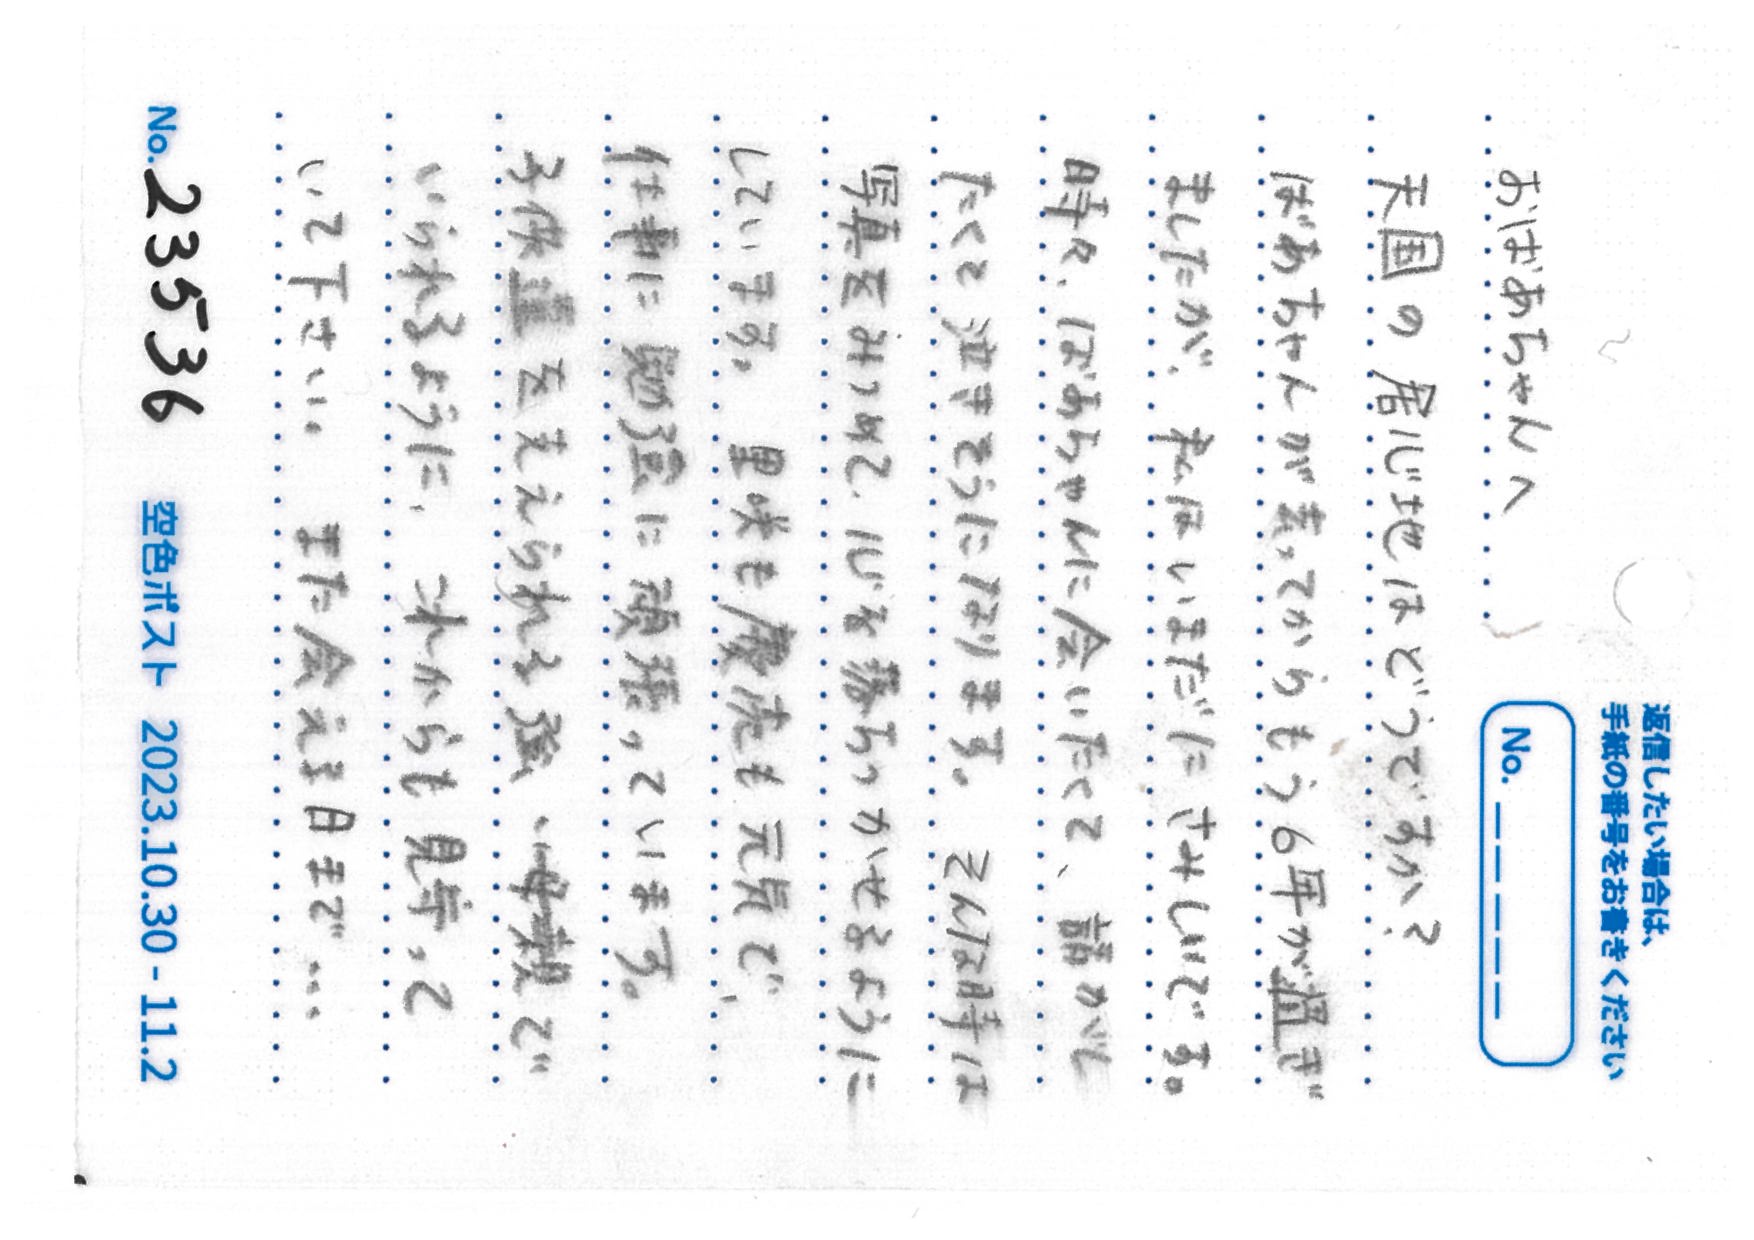 返信したい場合は、
手紙の番号をお書きください
No. _ _ _ _ _
おばあちゃんへ
天国の居心地はどうですか?
ばあちゃんが去ってからもう6年が過ぎ
ましたが、私はいまだにさみしいです。
時々、ばあちゃんに会いたくて、話がし
たくて泣きそうになります。そんな時は
写真をみつめて、心を落ちつかせるように
しています。里咲も慶虎も元気で、
仕事に勉強に頑張っています。
子供達を支えられる強い母親で
いられるように、これからも見守って
いて下さい。また会える日まで…
No. 23536 空色ポスト 2023.10.30 - 11.2